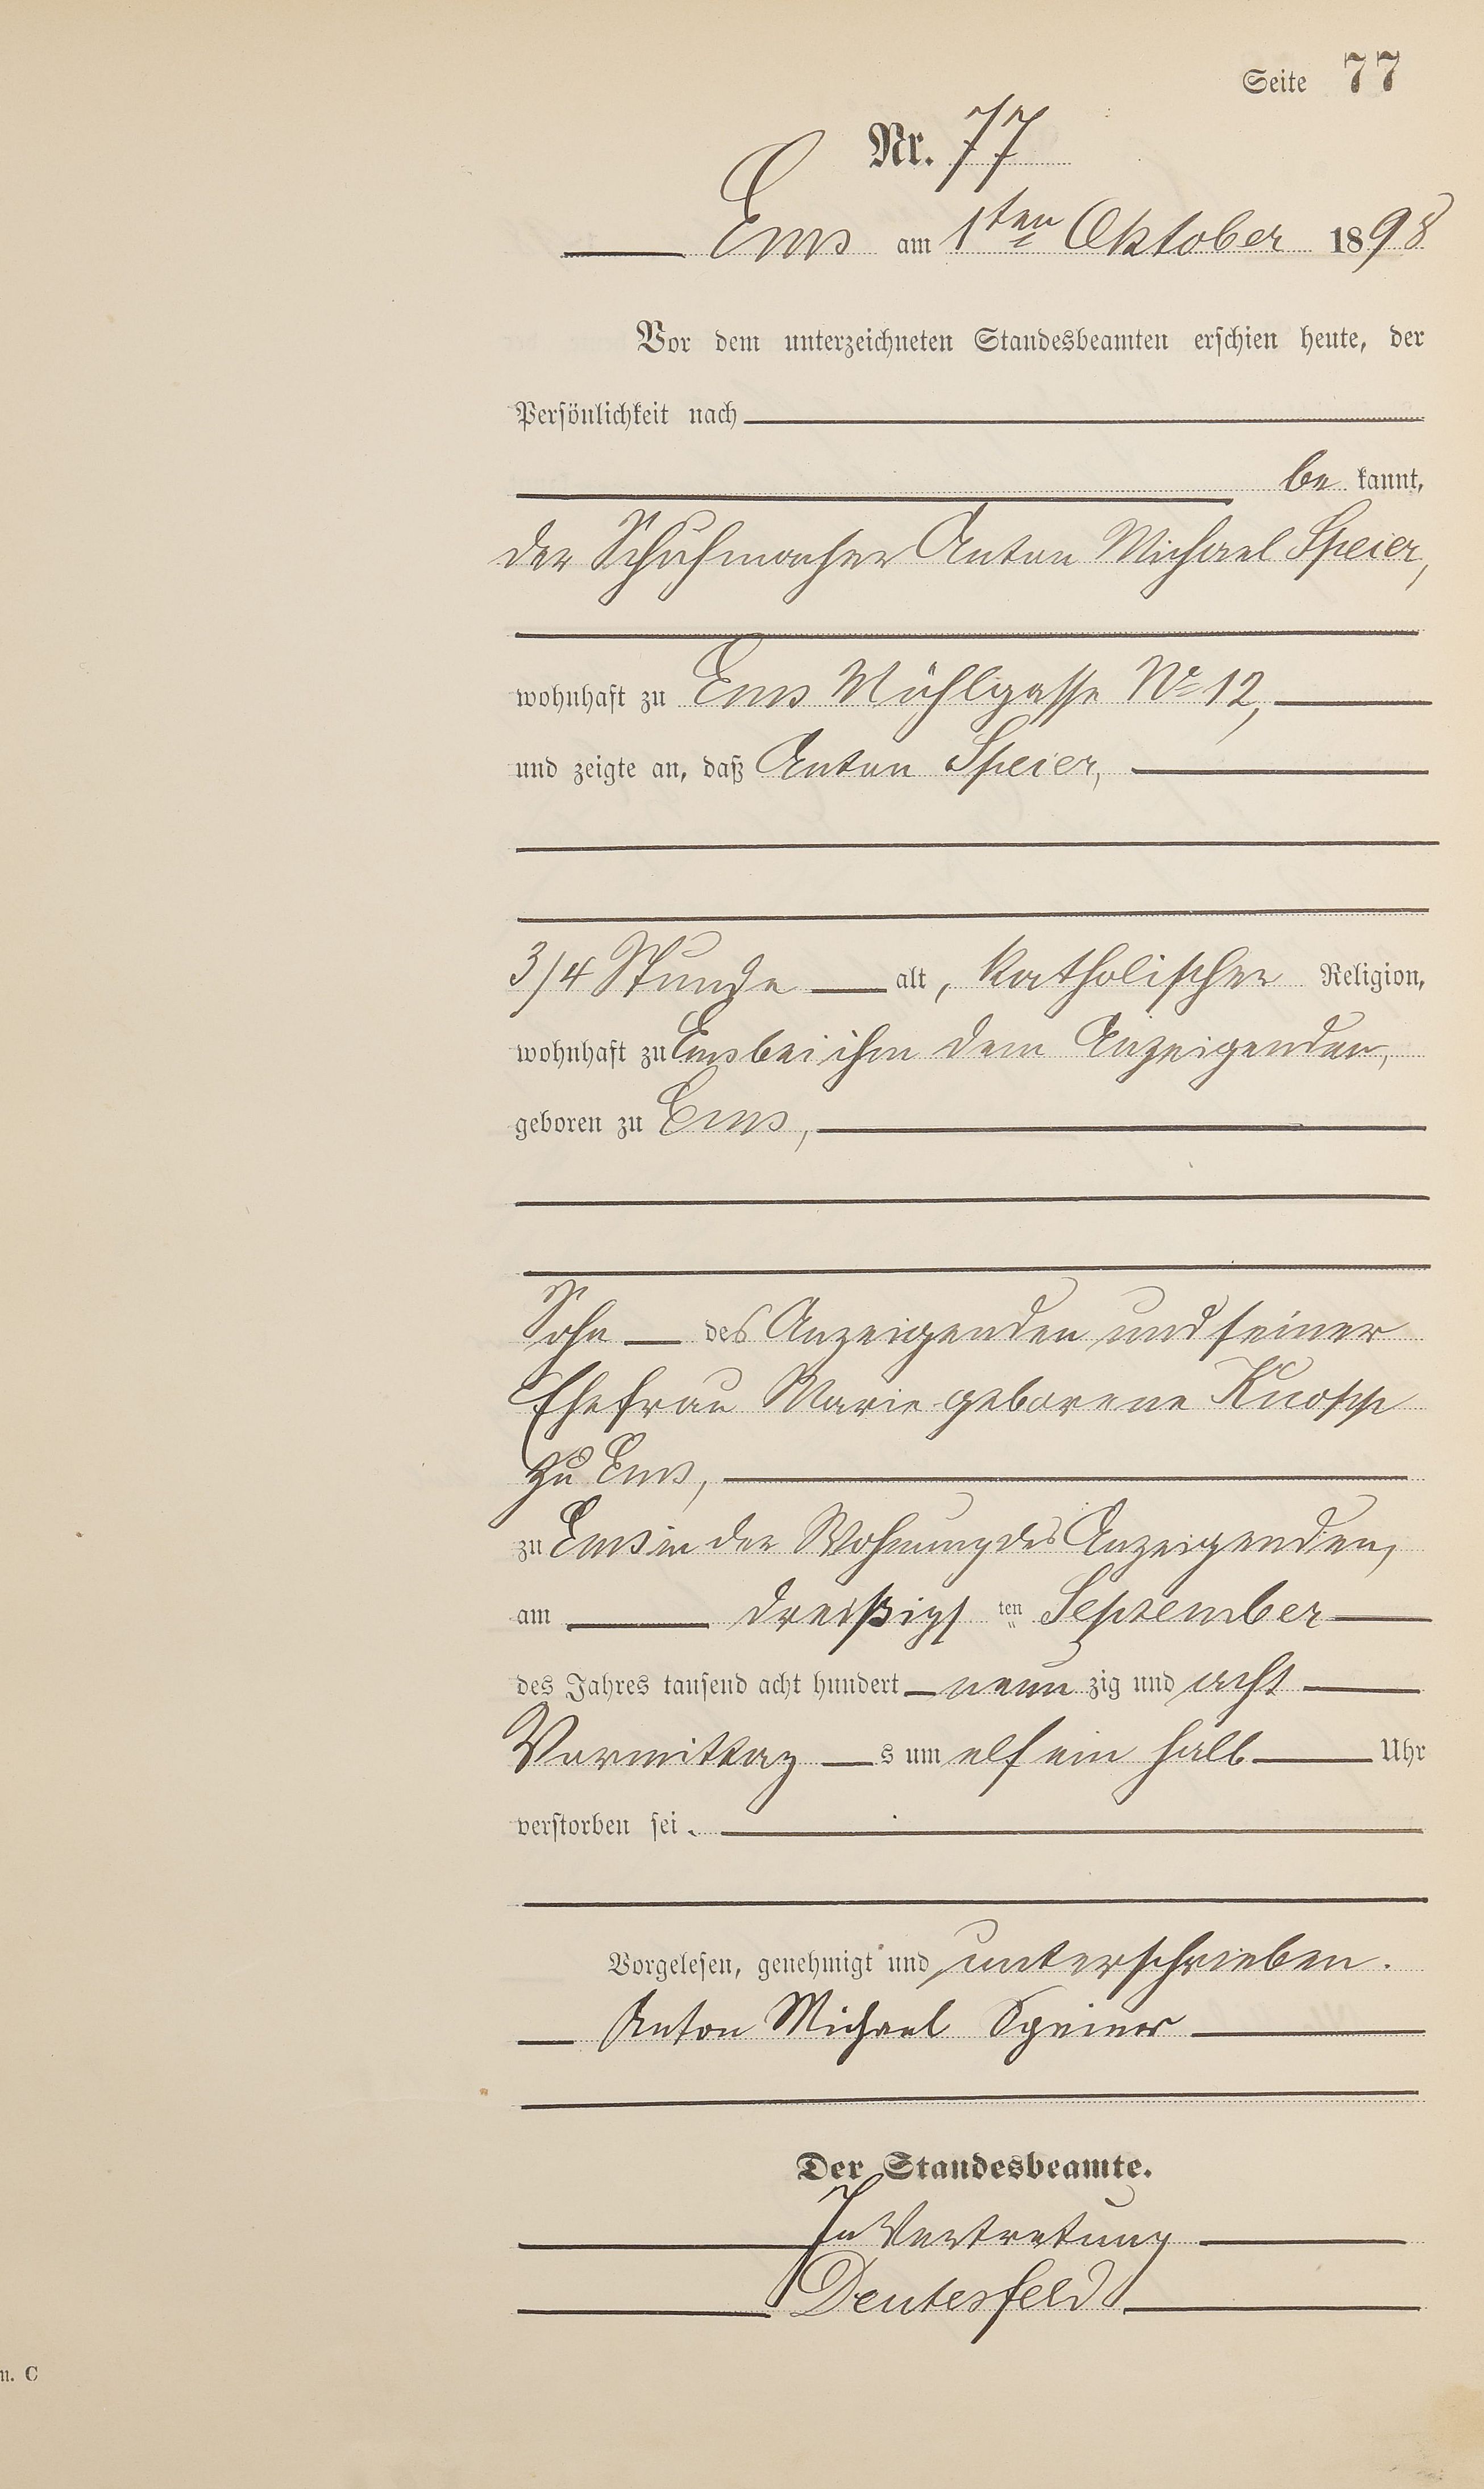 Seite 77
Nr. 77
Ems am 1ten Oktober 1898
Vor dem unterzeichneten Standesbeamten erschien heute, der
Persönlichkeit nach
be kannt,
der Schuhmacher Anton Michael Speier,
wohnhaft zu Ems Mühlgasse No 12,
und zeigte an, daß Anton Speier,
3/4 Stunde alt, katholischer Religion,
wohnhaft zu Ems bei ihm dem Anzeigenden,
geboren zu Ems,
Sohn des Anzeigenden und seiner
Ehefrau Marie geborene Knopp
zu Ems,
zu Ems in der Wohnung des Anzeigenden,
am dreißigs ten September
des Jahres tausend acht hundert neun zig und acht
Vormittag s um elf ein halb Uhr
verstorben sei.
Vorgelesen, genehmigt und unterschrieben.
Anton Michael Speier
Der Standesbeamte.
In Vertretung
Deutesfeld
n. C